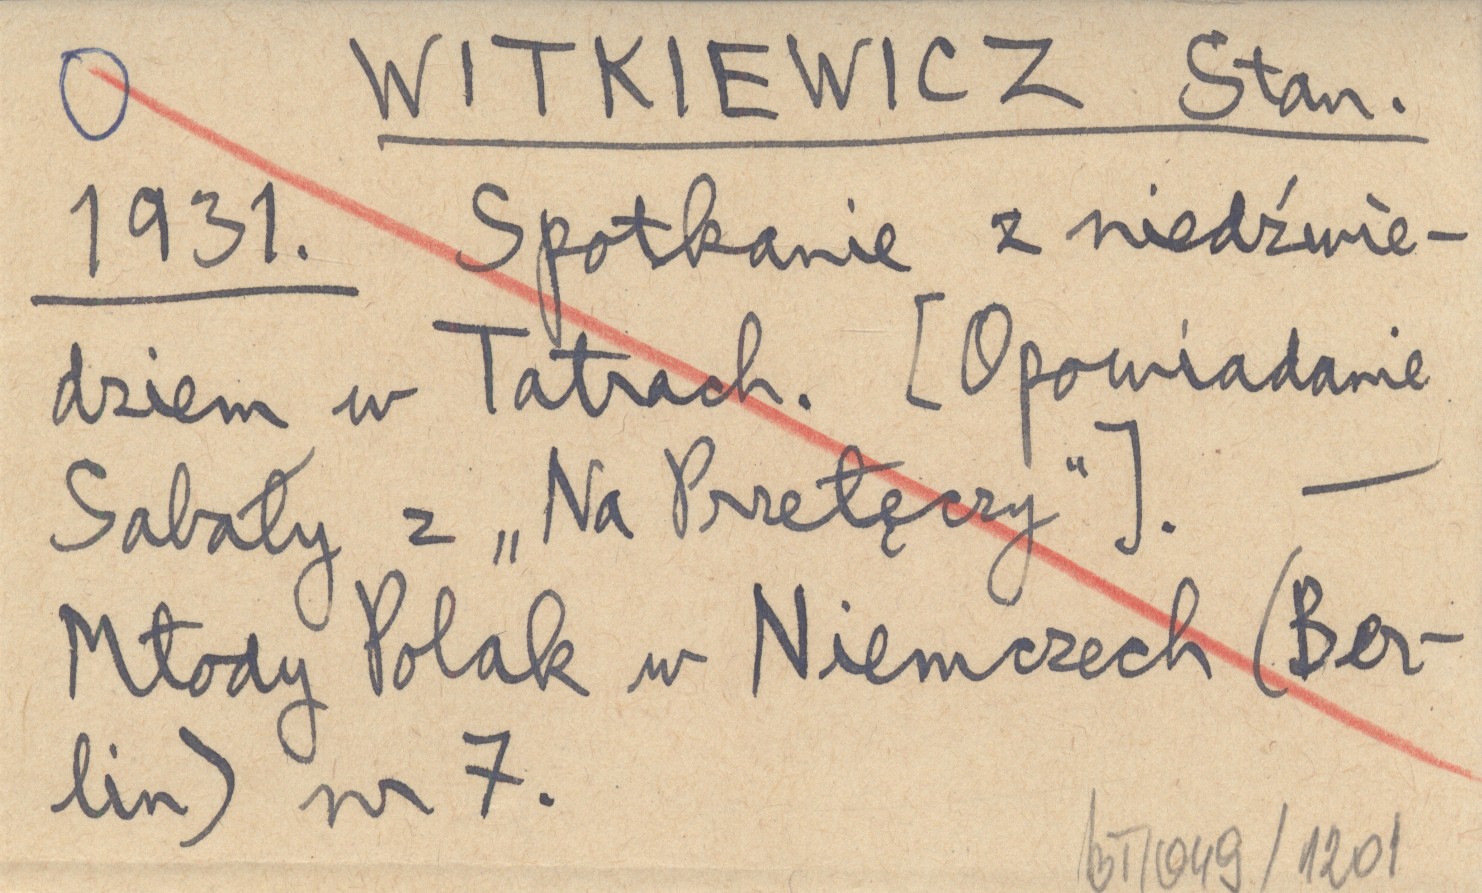 WITKIEWICZ Stan.
1931. Spotkanie z niedźwie-
dziem w Tatrach. [Opowiadanie
Sabały z „Na Przełęczy"]. —
Młody Polak w Niemczech (Ber-
lin) nr 7.
/1201